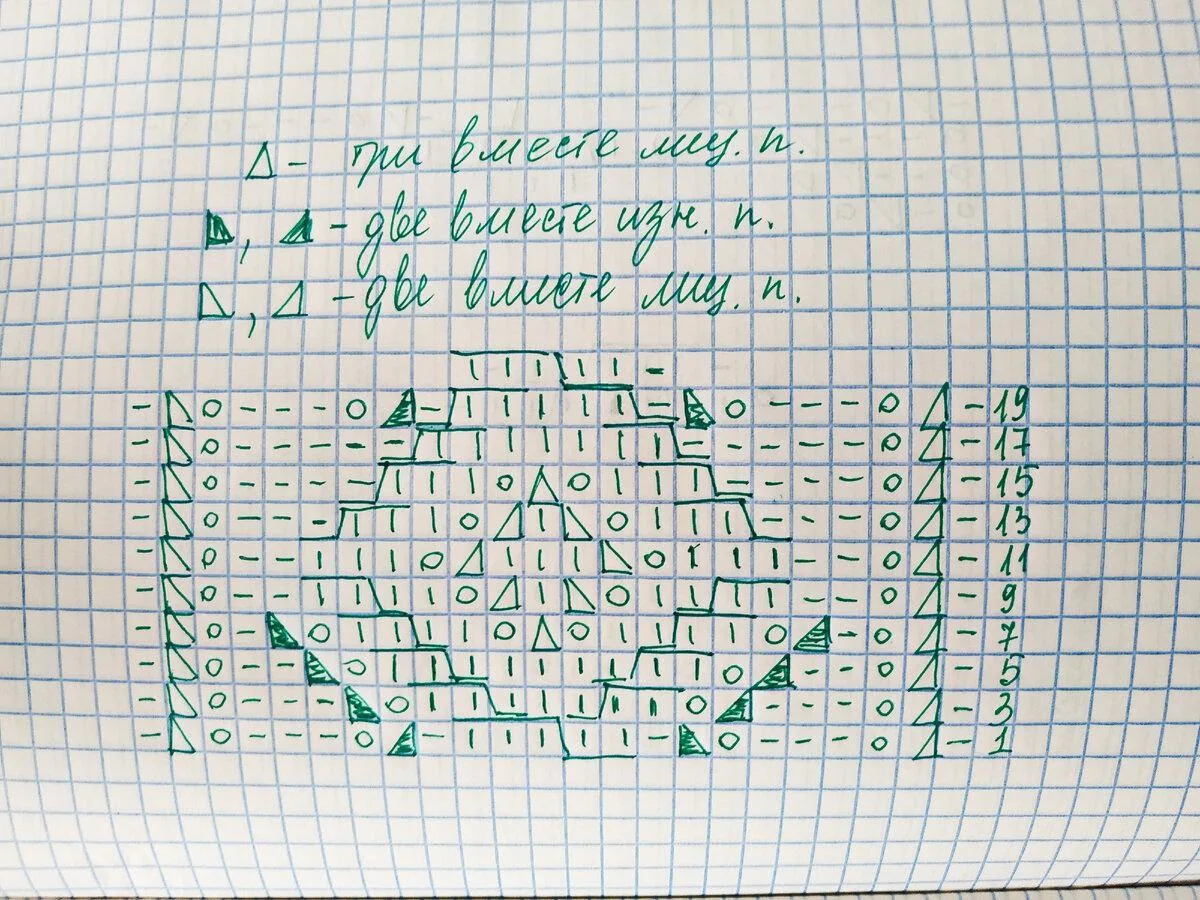 △ - три вместе лиц. п.
◣, ◢ - две вместе изн. п.
◺, ◿ - две вместе лиц. п.
19
17
15
13
11
9
7
5
3
1